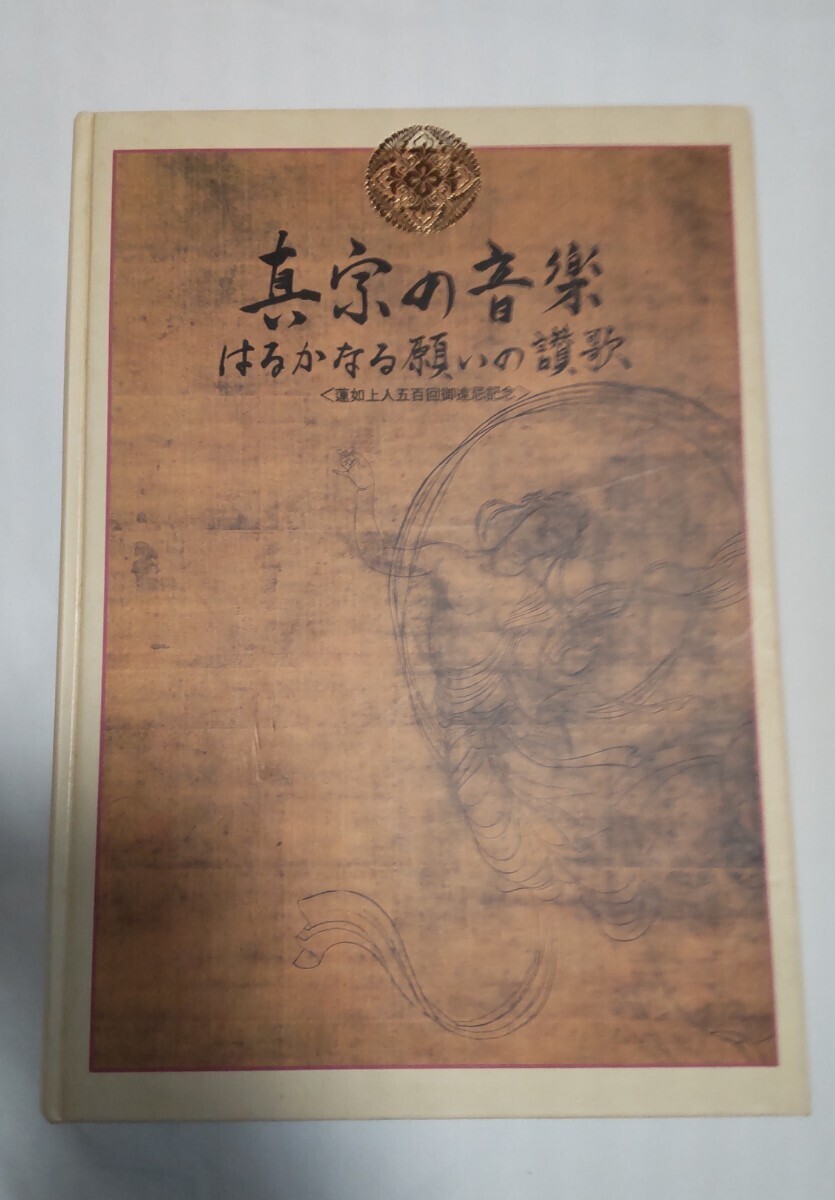 真宗の音楽
はるかなる願いの讃歌
<蓮如上人五百回御遠忌記念>